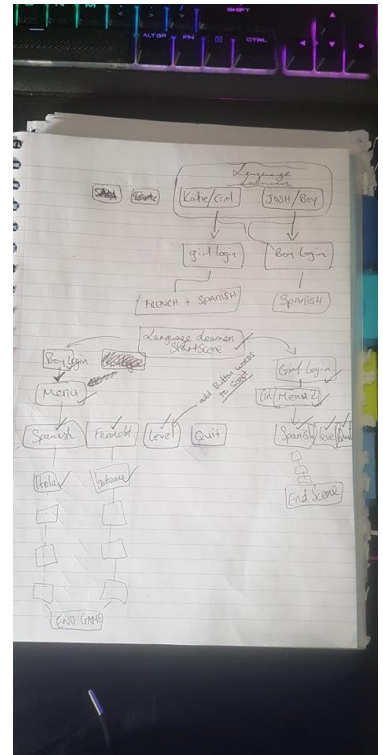 SHIFT
ALT GR FN CTRL
N M
Language
Learner
Katie/Girl JOSH/Boy
girl login Boy Login
FRENCH + SPANISH Spanish
Language Learner
StartScene
Boy login
Girl Login
add Button words
to Script
Menu
Menu 2
Spanish French Level Quit Spanish level
Hola
End Scene
END GAME